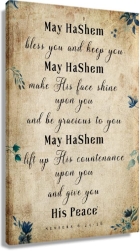 May HaShem
bless you and keep you
May HaShem
make His face shine
upon you
and be gracious to you
May HaShem
lift up His countenance
upon you
and give you
His Peace